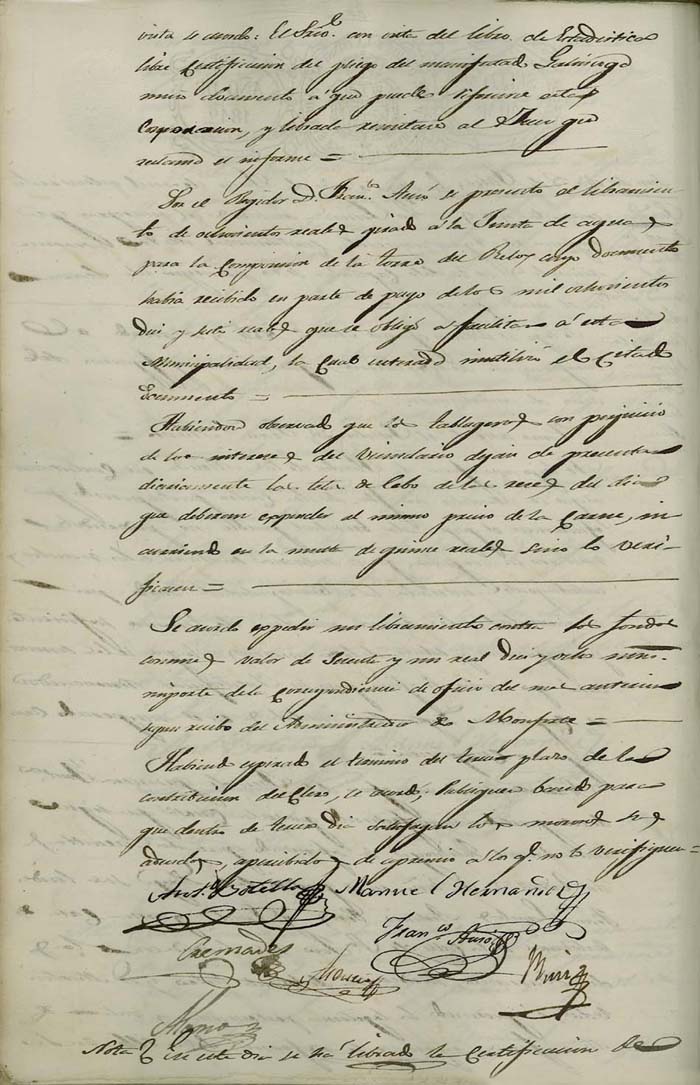 vista se acordo: El Srio. con vista del libro de Estadistica
libre Certificacion del pliego del manifestado
unico documento á que puede referirse esta
Corporacion, y librada remitase al Sr Juez que
reclama el informe =
Por el Regidor D. Franco. Auso se presento el libramien-
to de ochocientos reales girado á la Junta de aguas
para la Composicion de la torre del Relox cuyo documento
habia recibido en parte de pago de los mil ochocientos
diez y seis reales que se obligó a facilitar á esta
Municipalidad, la Cual enterada inutilizó el Citado
documento =
Habiendose observado que los tablageros con perjuicio
de los intereses del Vecindario dejan de presentar
diariamente la tela de Cebo de las reces del dia
que deberan expender al mismo precio de la Carne, in-
curriendo en la multa de quince reales sino lo veri-
ficaren =
Se acordo expedir un libramiento contra los fondos
comunes valor de Sesenta y un real diez y ocho mrs.
importe de la Correspondencia de oficio del mes anterior
segun recibo del Administrador de Monforte =
Habiendo espirado el termino del tercer plazo de la
contribucion del Clero, se acordo; Publiquese bando para
que dentro de tercer dia satisfagan los morosos sus
adeudos, apercibidos de apremio a los q. no lo verifiquen =
Anto. Botella Manuel Hernandez
Franco Auso
Cremades
Mira
Nota En este dia se há librado la Certificacion de